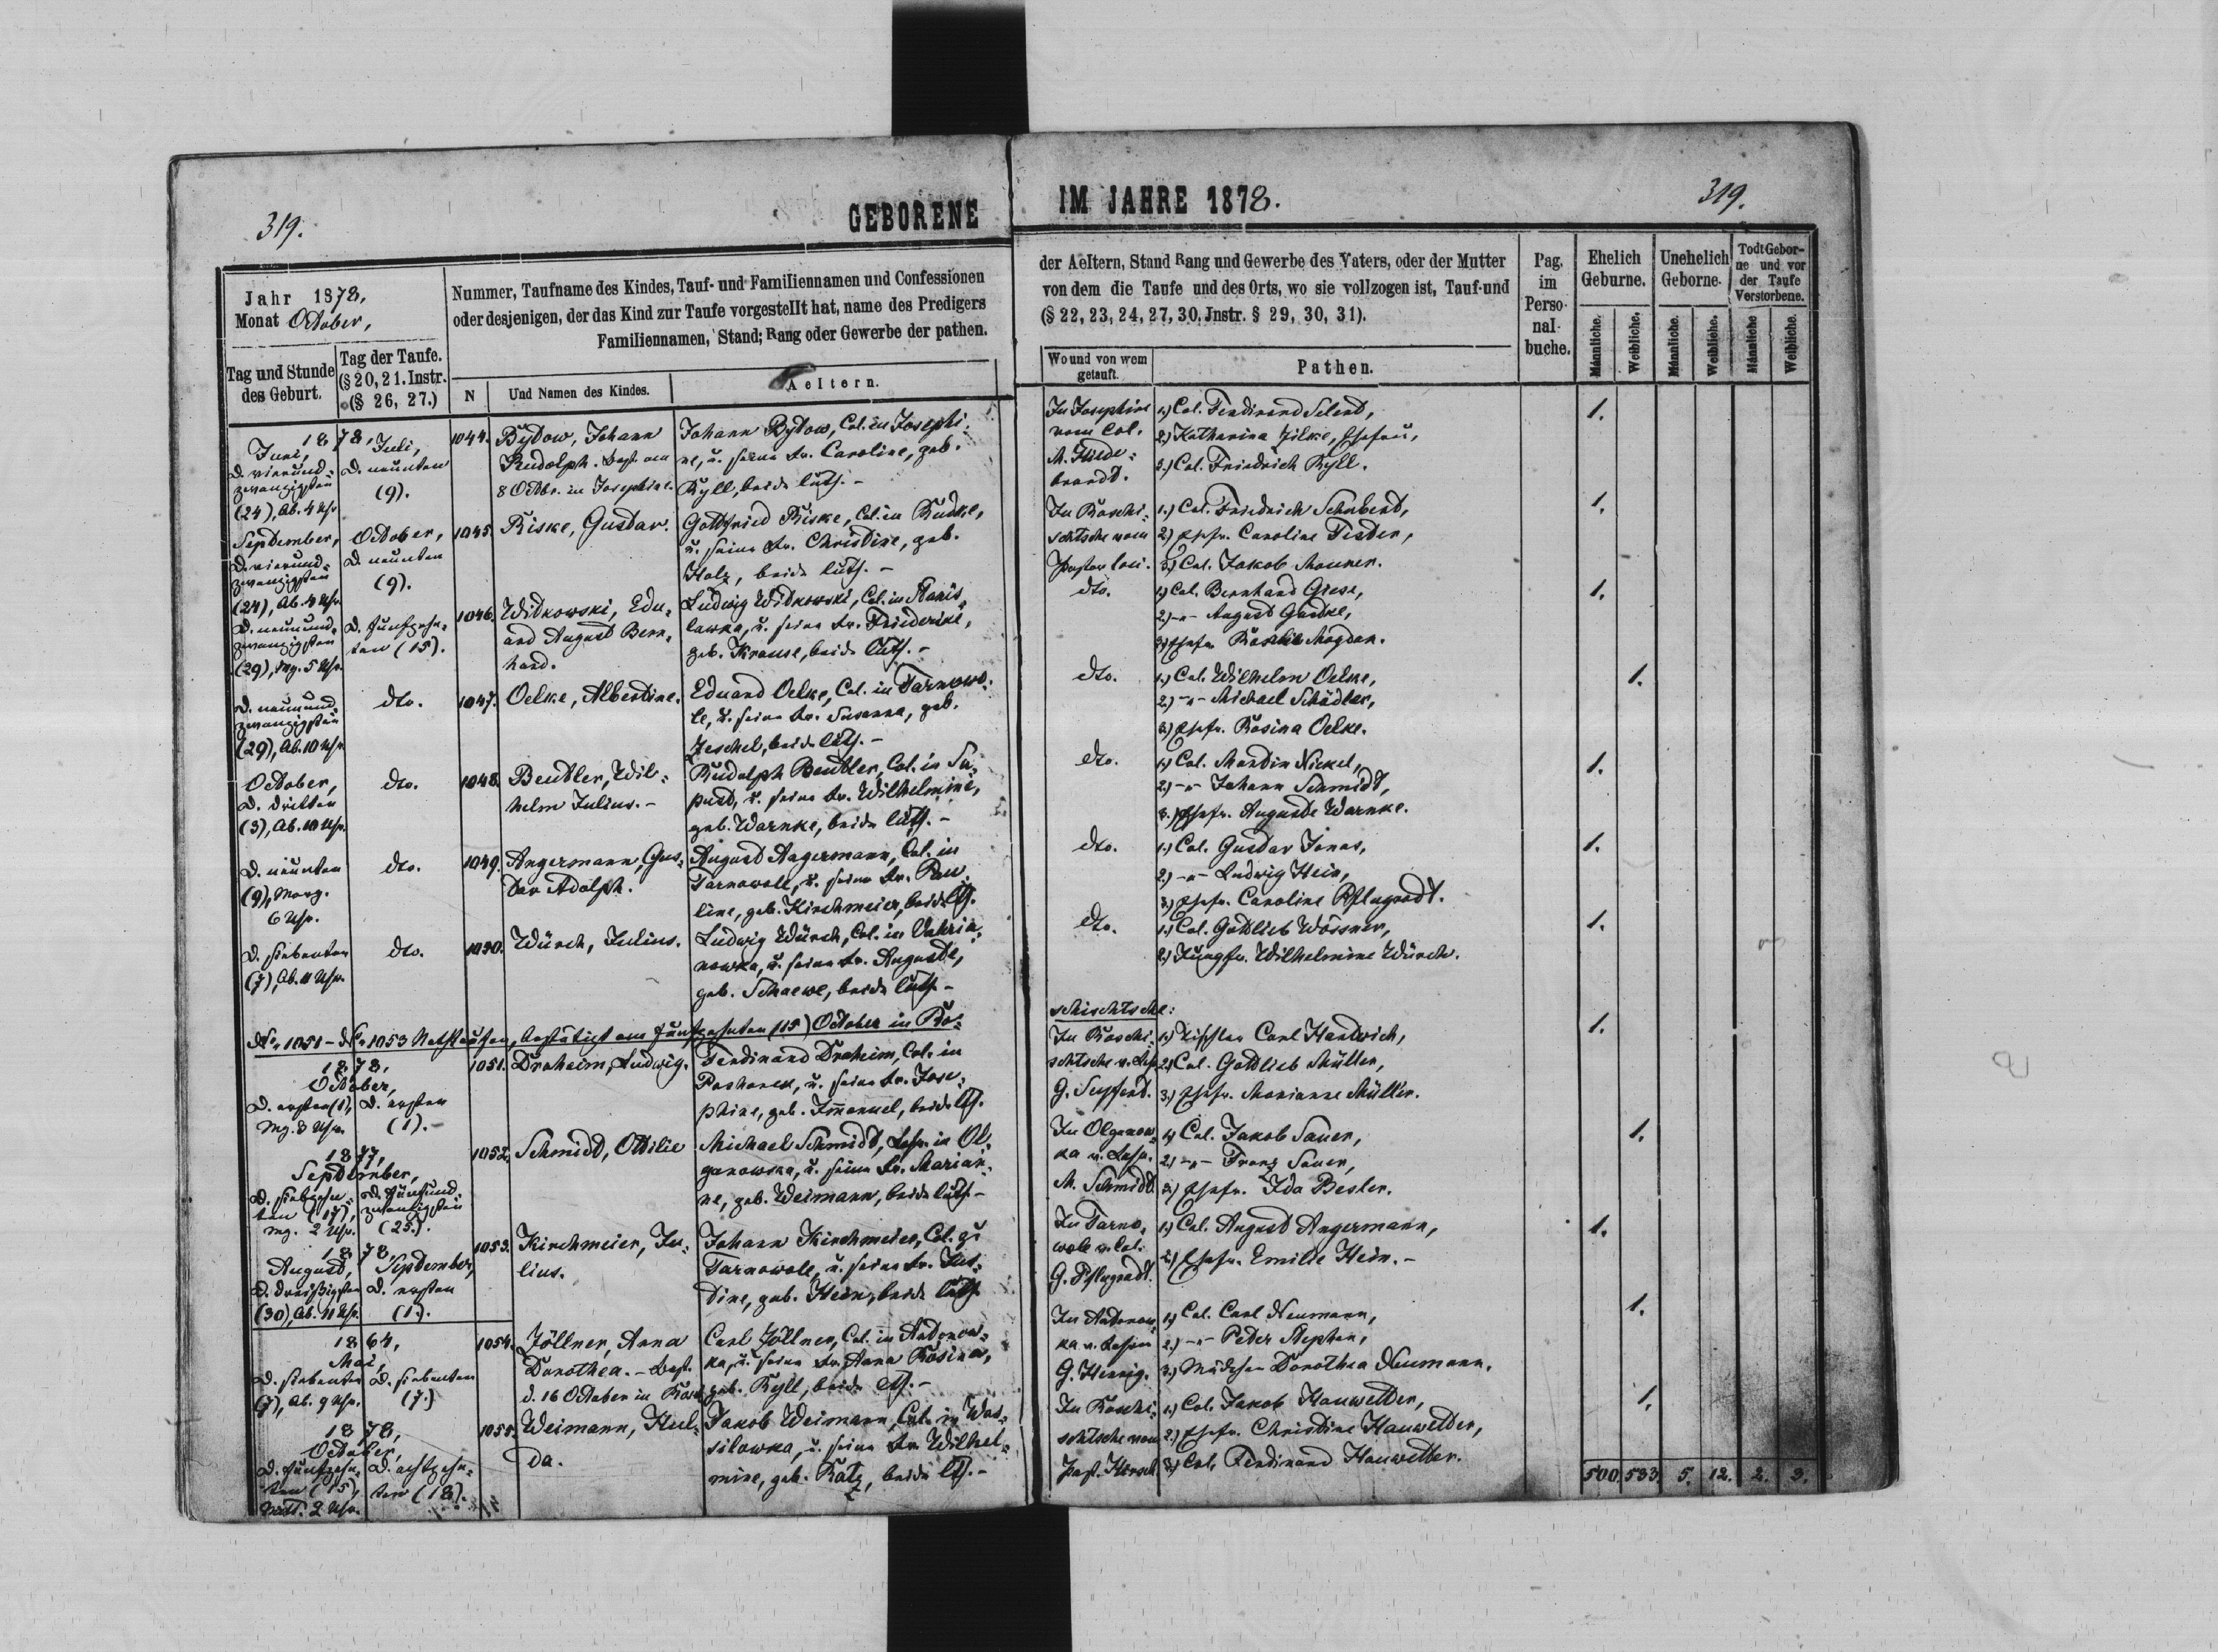 319.
GEBORENE
IM JAHRE 1878.
319.
Jahr 1878,
Monat October,
Nummer, Taufname des Kindes, Tauf- und Familiennamen und Confessionen
oder desjenigen, der das Kind zur Taufe vorgestellt hat, name des Predigers
Familiennamen, Stand; Rang oder Gewerbe der pathen.
Tag und Stunde
des Geburt.
Tag der Taufe.
(§ 20, 21. Instr.
(§ 26, 27.)
N
Und Namen des Kindes.
Aeltern.
der Aeltern, Stand Rang und Gewerbe des Vaters, oder der Mutter
von dem die Taufe und des Orts, wo sie vollzogen ist, Tauf-und
(§ 22, 23, 24, 27, 30, Jnstr. § 29, 30, 31).
Wo und von wem
getauft.
Pathen.
Pag.
im
Perso-
nal-
buche.
Ehelich
Geburne.
Unehelich
Geborne.
Todt Gebor-
ne und vor
der Taufe
Verstorbene.
Männliche.
Weibliche.
Männliche.
Weibliche.
Männliche
Weibliche.
1878,
Juni,
D. vierund-
zwanzigsten
(24), Ab. 4 Uhr
Juli,
D. neunten
(9).
1044.
Bytow, Johann
Rudolph. Best. am
8 Octbr. in Josephine.
Johann Bytow, Col. in Josephi-
ne, u. seine Fr. Caroline, geb.
Ryll, beide luth. -
In Josephine
vom Col.
M. Hilde-
brandt.
1.) Col. Ferdinand Selent,
2.) Katharina Zilke, Ehefrau,
3.) Col. Friedrich Ryll.
1.
September,
D. vierund-
zwanzigsten
(24), Ab. 4 Uhr
October,
D. neunten
(9).
1045.
Riske, Gustav.
Gottfried Riske, Col. in Rudke,
u. seine Fr. Christine, geb.
Holz, beide luth. -
In Roschi-
schtsche vom
Pastor loci.
1.) Col. Friedrich Schubert,
2.) Ehefr. Caroline Tester,
3.) Col. Jakob Maurer.
1.
D. neunund-
zwanzigsten
(29), Mg. 5 Uhr
D. fünfzehn-
ten (15).
1046.
Witkowski, Edu-
ard August Bern-
hard.
Ludwig Witkowski, Col. in Stanis-
lawka, u. seine Fr. Friederike,
geb. Krause, beide luth. -
dto.
1.) Col. Bernhard Giese,
2.) -"- August Gadtke,
3.) Ehefr. Rosalie Mogdan.
1.
D. neunund-
zwanzigsten
(29), Ab. 10 Uhr
dto.
1047.
Oelke, Albertine.
Eduard Oelke, Col. in Tarnowo-
le, u. seine Fr. Susanna, geb.
Zeschel, beide luth. -
dto.
1.) Col. Wilhelm Oelke,
2.) -"- Michael Schädler,
3.) Ehefr. Rosina Oelke.
1.
October,
D. dritten
(3), Ab. 10 Uhr.
dto.
1048.
Beutler, Wil-
helm Julius. -
Rudolph Beutler, Col. in Su-
pust, u. seine Fr. Wilhelmine,
geb. Warnke, beide luth. -
dto.
1.) Col. Martin Nickel,
2.) -"- Johann Schmidt,
3.) Ehefr. Auguste Warnke.
1.
D. neunten
(9), Morg.
6 Uhr.
dto.
1049.
Angermann, Gus-
tav Adolph.
August Angermann, Col. in
Tarnowole, u. seine Fr. Pau-
line, geb. Kirchmeier, beide lth.
dto.
1.) Col. Gustav Jonas,
2.) -"- Ludwig Hein,
3.) Ehefr. Caroline Pflugradt.
1.
D. siebenten
(7), Ab. 11 Uhr.
dto.
1050.
Würch, Julius.
Ludwig Würch, Col. in Uchrin-
nowka, u. seine Fr. Auguste,
geb. Schaewe, beide luth. -
dto.
1.) Col. Gottlieb Wössner,
2.) Jungfr. Wilhelmine Würch.
1.
No. 1051 - No. 1053 Nothtaufen, bestätigt am fünfzehnten (15) October in Ro-
schischtsche:
1878,
October,
D. ersten (1),
Mg. 8 Uhr.
D. ersten
(1). -
1051.
Draheim, Ludwig.
Ferdinand Draheim, Col. in
Poshorek, u. seine Fr. Jose-
phine, geb. Immanuel, beide lth.
In Roschi-
schtsche v. Lehr.
G. Seyffert.
1.) Tischler Carl Hartwich,
2.) Col. Gottlieb Müller,
3.) Ehefr. Marianne Müller.
1.
1877,
September,
D. siebzehn-
ten (17),
Mg. 2 Uhr.
D. fünfund-
zwanzigsten
(25).
1052.
Schmidt, Ottilie
Michael Schmidt, Lehr. in Ol-
ganowka, u. seine Fr. Marian-
ne, geb. Weimann, beide luth. -
In Olganow-
ka v. Lehr.
M. Schmidt
1.) Col. Jakob Sauer,
2.) -"- Franz Sauer,
3.) Ehefr. Ida Besler.
1.
1878,
August,
D. dreißigsten
(30), Ab. 11 Uhr.
September,
D. ersten
(1.).
1053.
Kirchmeier, Ju-
lius.
Johann Kirchmeier, Col. zu
Tarnowole, u. seine Fr. Jus-
tine, geb. Hein, beide luth.
In Tarno-
wole v. Col.
G. Pflugradt.
1.) Col. August Angermann,
2.) Ehefr. Emilie Hein. -
1.
1864,
Mai,
D. siebenten
(7), Ab. 9 Uhr.
D. siebenten
(7.)
1054.
Zöllner, Anna
Dorothea. - Best.
d. 16 October in Rosch.
Carl Zöllner, Col. in Antonow-
ka, u. seine Fr. Anna Rosina,
geb. Ryll, beide lth. -
In Antonow-
ka v. Lehrer
G. Hennig.
1.) Col. Carl Neumann,
2.) -"- Peter Stephan,
3.) Mädchen Dorothea Neumann.
1.
1878,
October,
D. fünfzehn-
ten (15),
Mitt. 2 Uhr.
D. achtzehn-
ten (18).
1055.
Weimann, Hul-
da.
Jakob Weimann, Col. in Was-
silowka, u. seine Fr. Wilhel-
mine, geb. Ratz, beide lth. -
In Roschi-
schtsche vom
Past. Kersch
1.) Col. Jakob Hauwetter,
2.) Ehefr. Christine Hauwetter,
3.) Col. Ferdinand Hauwetter.
1.
500. 533. 5. 12. 2. 3.